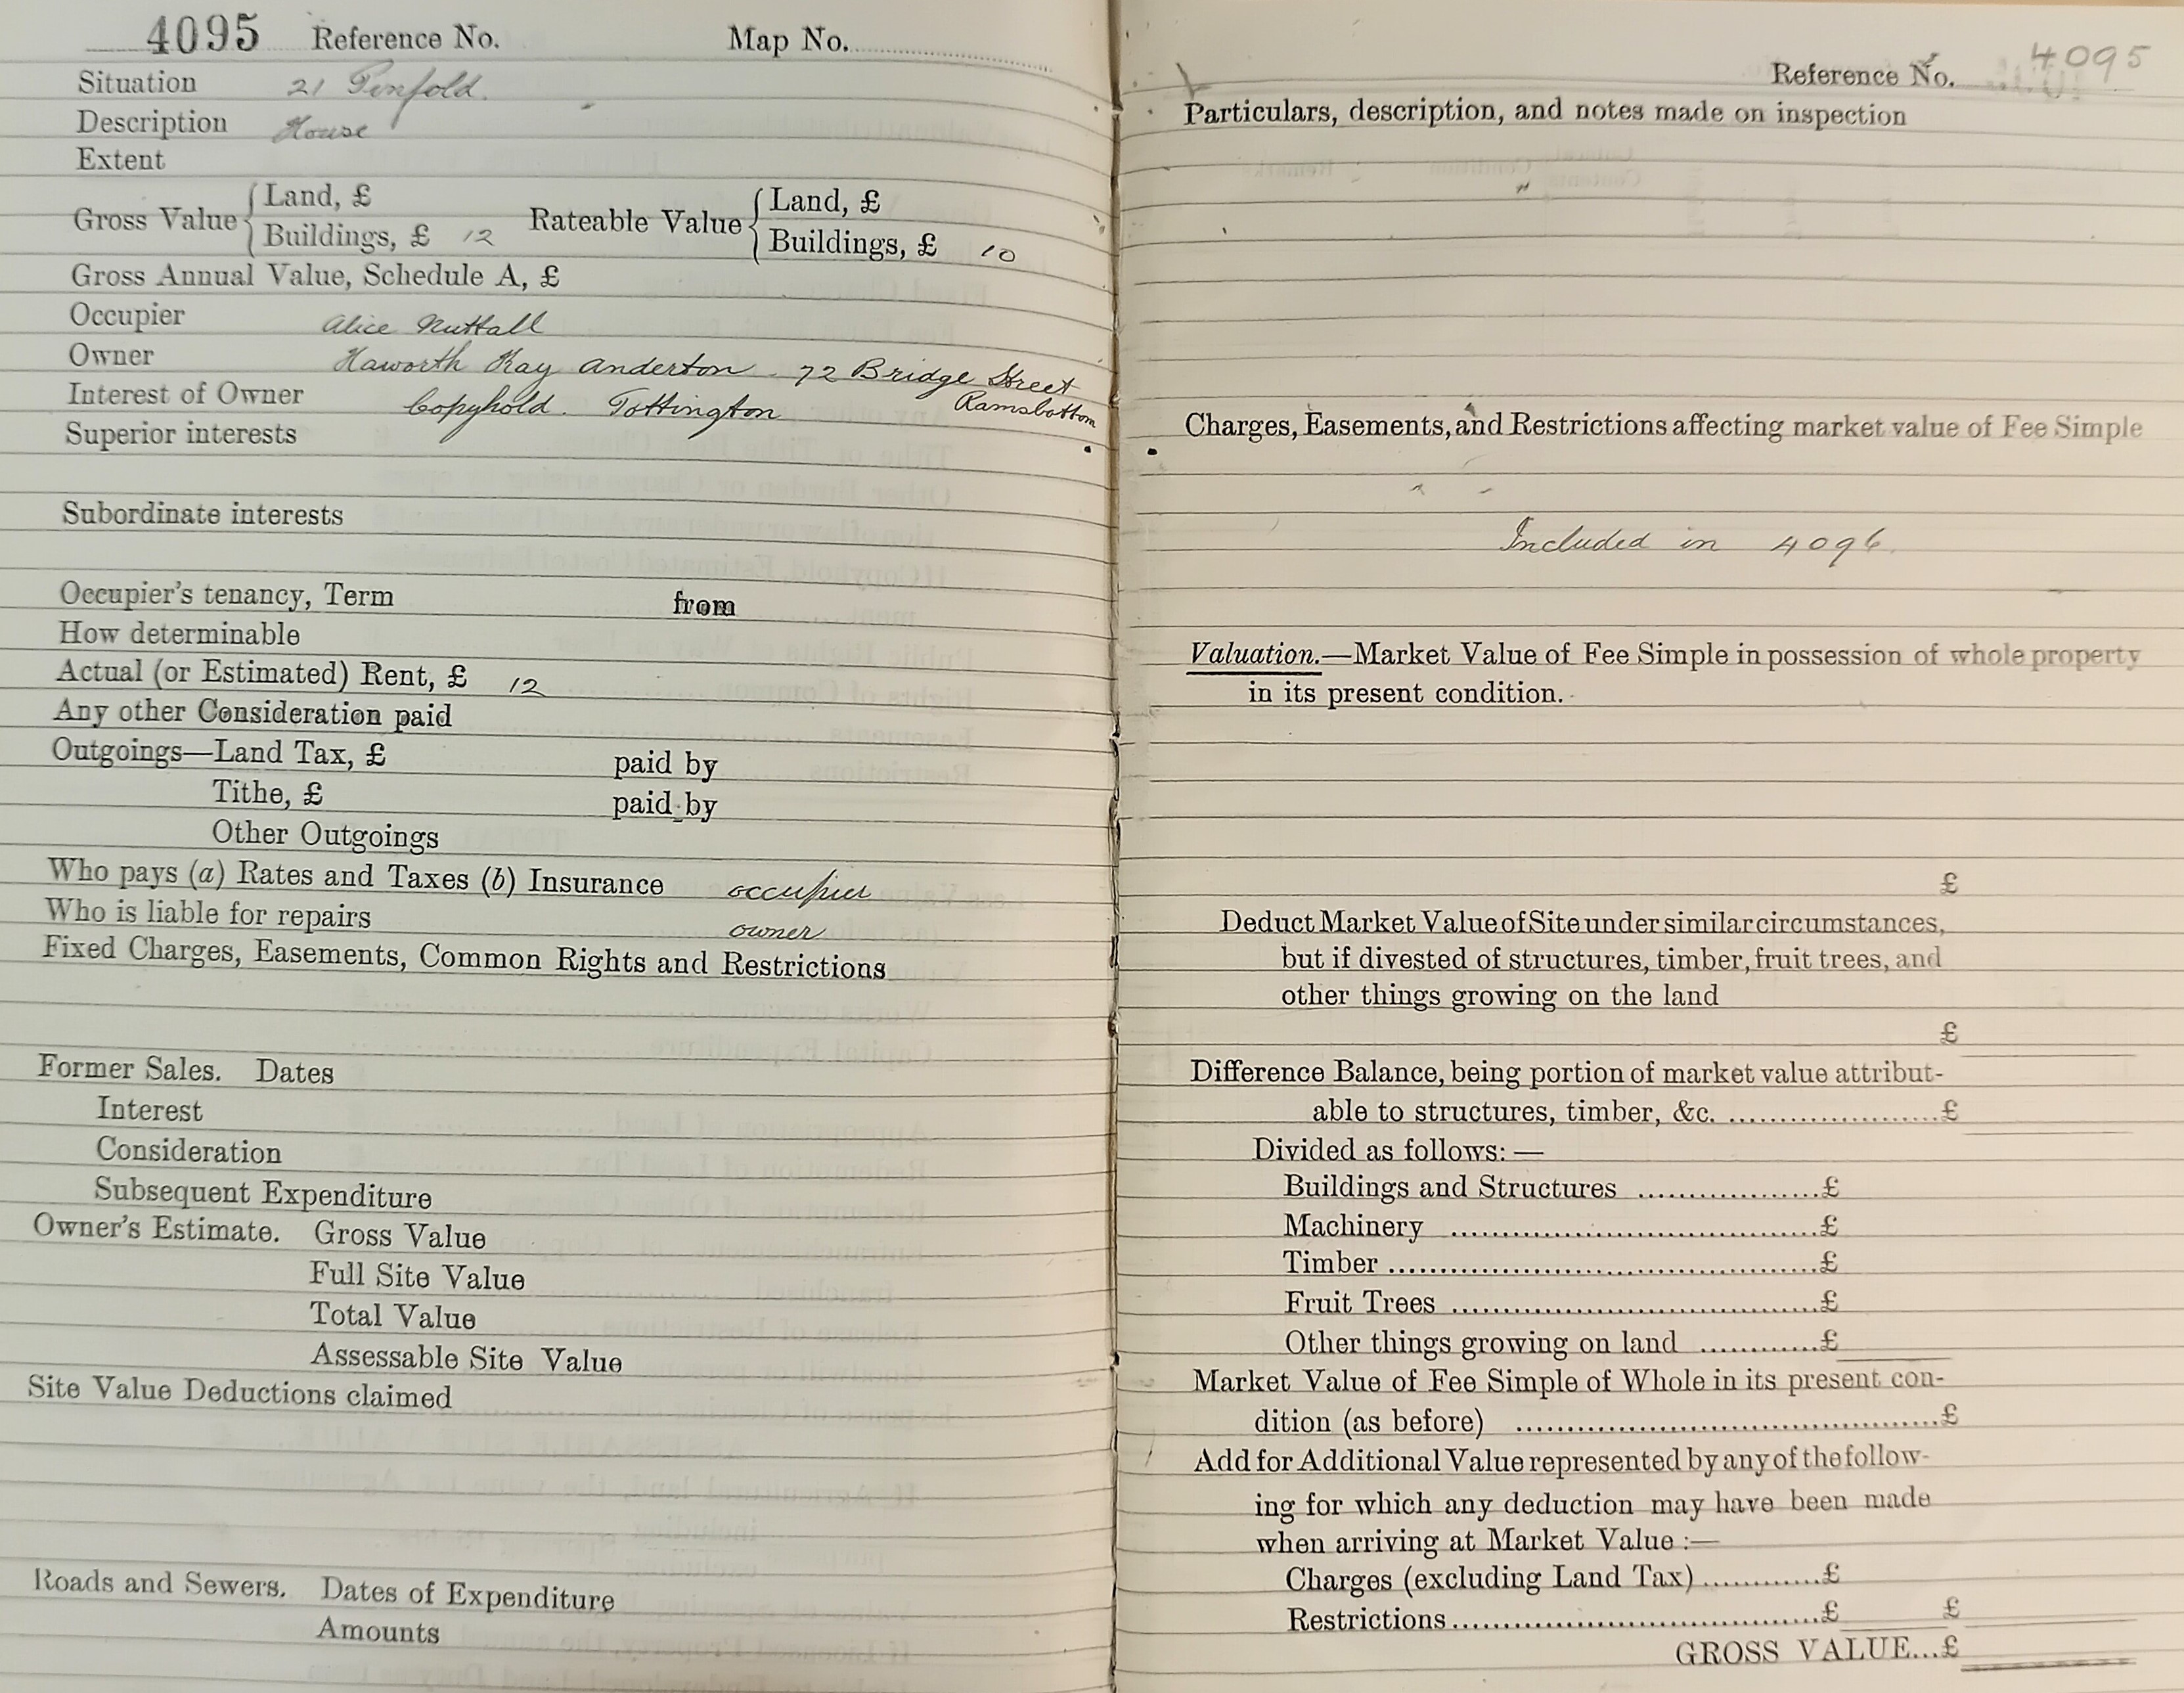 4095 Reference No. Map No.
Situation 21 Penfold.
Description House
Extent
Gross Value { Land, £ Rateable Value { Land, £
Buildings, £ 12 Buildings, £ 10
Gross Annual Value, Schedule A, £
Occupier Alice Nuttall
Owner Haworth Kay Anderton - 72 Bridge Street
Ramsbottom
Interest of Owner Copyhold. Tottington
Superior interests
Subordinate interests
Occupier's tenancy, Term from
How determinable
Actual (or Estimated) Rent, £ 12
Any other Consideration paid
Outgoings—Land Tax, £ paid by
Tithe, £ paid by
Other Outgoings
Who pays (a) Rates and Taxes (b) Insurance occupier
Who is liable for repairs owner
Fixed Charges, Easements, Common Rights and Restrictions
Former Sales. Dates
Interest
Consideration
Subsequent Expenditure
Owner's Estimate. Gross Value
Full Site Value
Total Value
Assessable Site Value
Site Value Deductions claimed
Roads and Sewers. Dates of Expenditure
Amounts
Reference No. 4095
Particulars, description, and notes made on inspection
Charges, Easements, and Restrictions affecting market value of Fee Simple
Included in 4096.
Valuation.—Market Value of Fee Simple in possession of whole property
in its present condition.
£
Deduct Market Value of Site under similar circumstances,
but if divested of structures, timber, fruit trees, and
other things growing on the land
£
Difference Balance, being portion of market value attribut-
able to structures, timber, &c. ....................£
Divided as follows:—
Buildings and Structures ..................£
Machinery ....................................£
Timber ..........................................£
Fruit Trees ....................................£
Other things growing on land ............£
Market Value of Fee Simple of Whole in its present con-
dition (as before) .........................................£
Add for Additional Value represented by any of the follow-
ing for which any deduction may have been made
when arriving at Market Value :—
Charges (excluding Land Tax) ............£
Restrictions ....................................£ £
GROSS VALUE...£